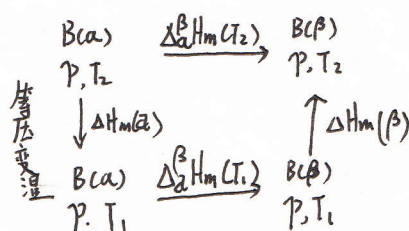 B(α) Δ_α^β Hm(T₂) B(β)
P, T₂ P, T₂
等压变温
ΔHm(α) ΔHm(β)
B(α) Δ_α^β Hm(T₁) B(β)
P. T₁ P, T₁